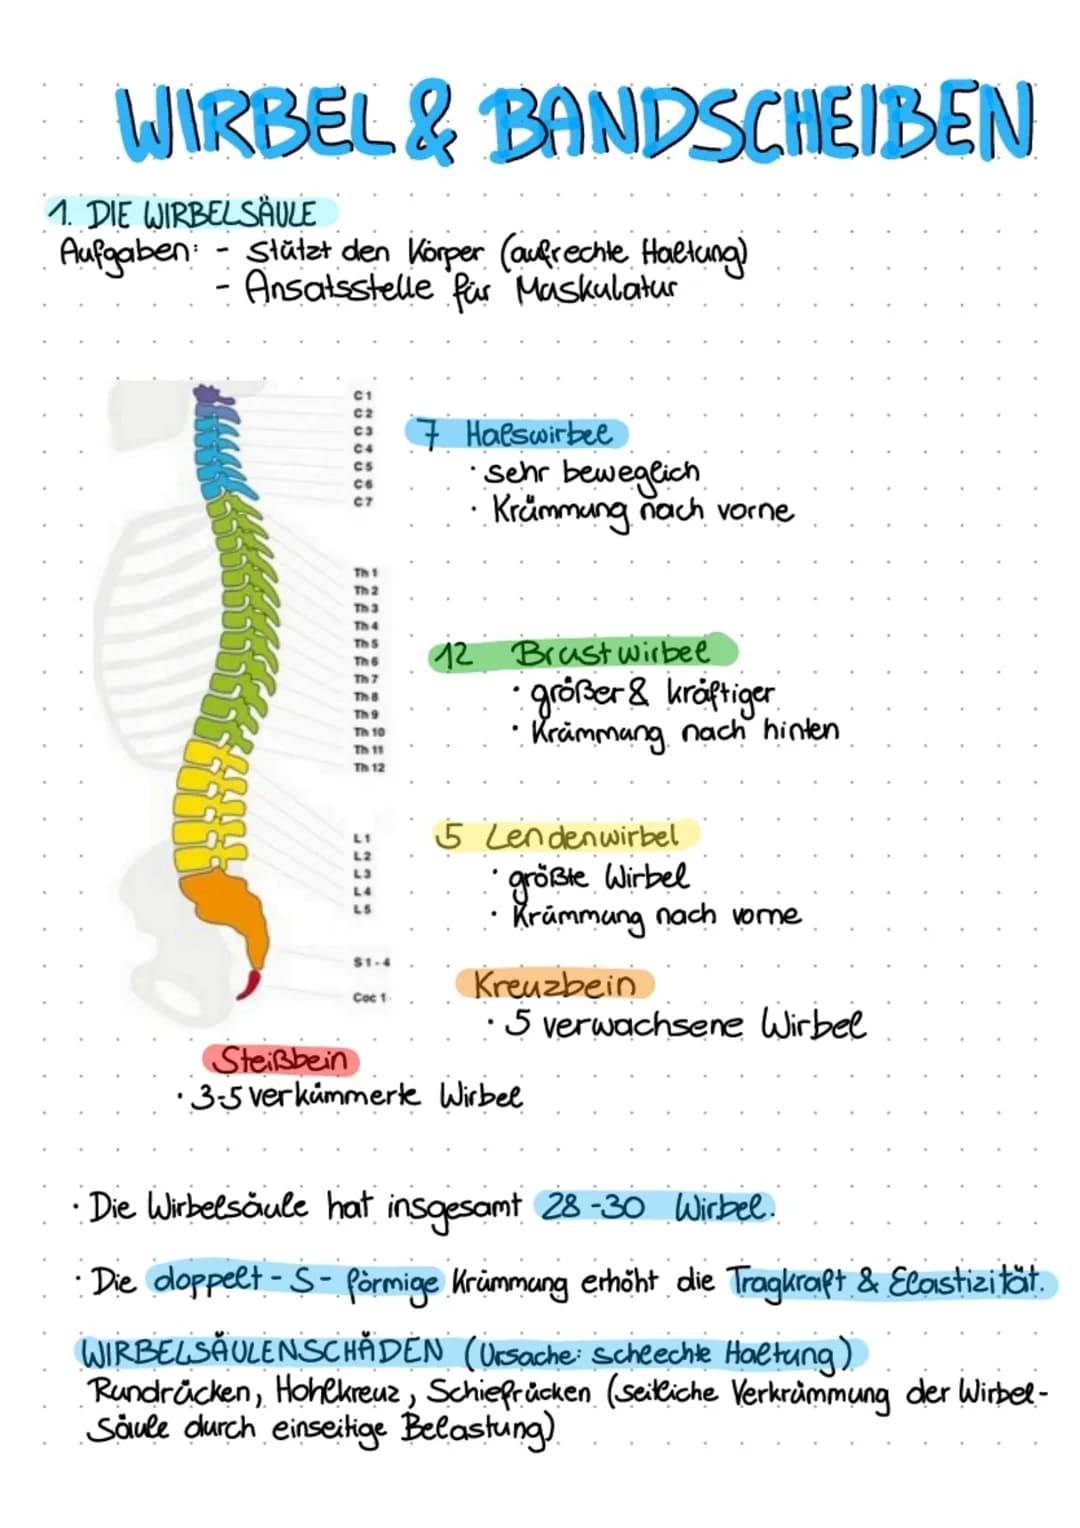 WIRBEL & BANDSCHEIBEN
1. DIE WIRBELSÄULE
Aufgaben: - Stützt den Körper (aufrechte Haltung)
- Ansatsstelle für Muskulatur
C1
C2
C3
C4
C5
C6
C7
7 Halswirbel
· sehr beweglich
· Krümmung nach vorne
Th 1
Th 2
Th 3
Th 4
Th 5
Th 6
Th 7
Th 8
Th 9
Th 10
Th 11
Th 12
12 Brustwirbel
· größer & kräftiger
· Krümmung nach hinten
L1
L2
L3
L4
L5
5 Lendenwirbel
· größte Wirbel
· Krümmung nach vorne
S1-4
Coc 1
Kreuzbein
· 5 verwachsene Wirbel
Steißbein
· 3-5 verkümmerte Wirbel
· Die Wirbelsäule hat insgesamt 28-30 Wirbel.
· Die doppelt-S-förmige Krümmung erhöht die Tragkraft & Elastizität.
WIRBELSÄULENSCHÄDEN (Ursache: schlechte Haltung)
Rundrücken, Hohlkreuz, Schiefrücken (seitliche Verkrümmung der Wirbel-
säule durch einseitige Belastung)